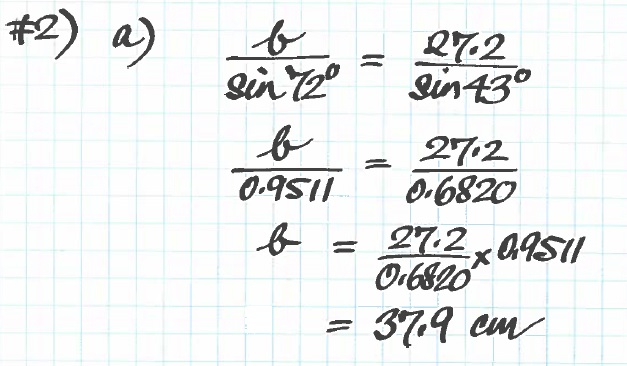 #2) a) b/sin 72° = 27.2/sin 43°
b/0.9511 = 27.2/0.6820
b = 27.2/0.6820 × 0.9511
= 37.9 cm